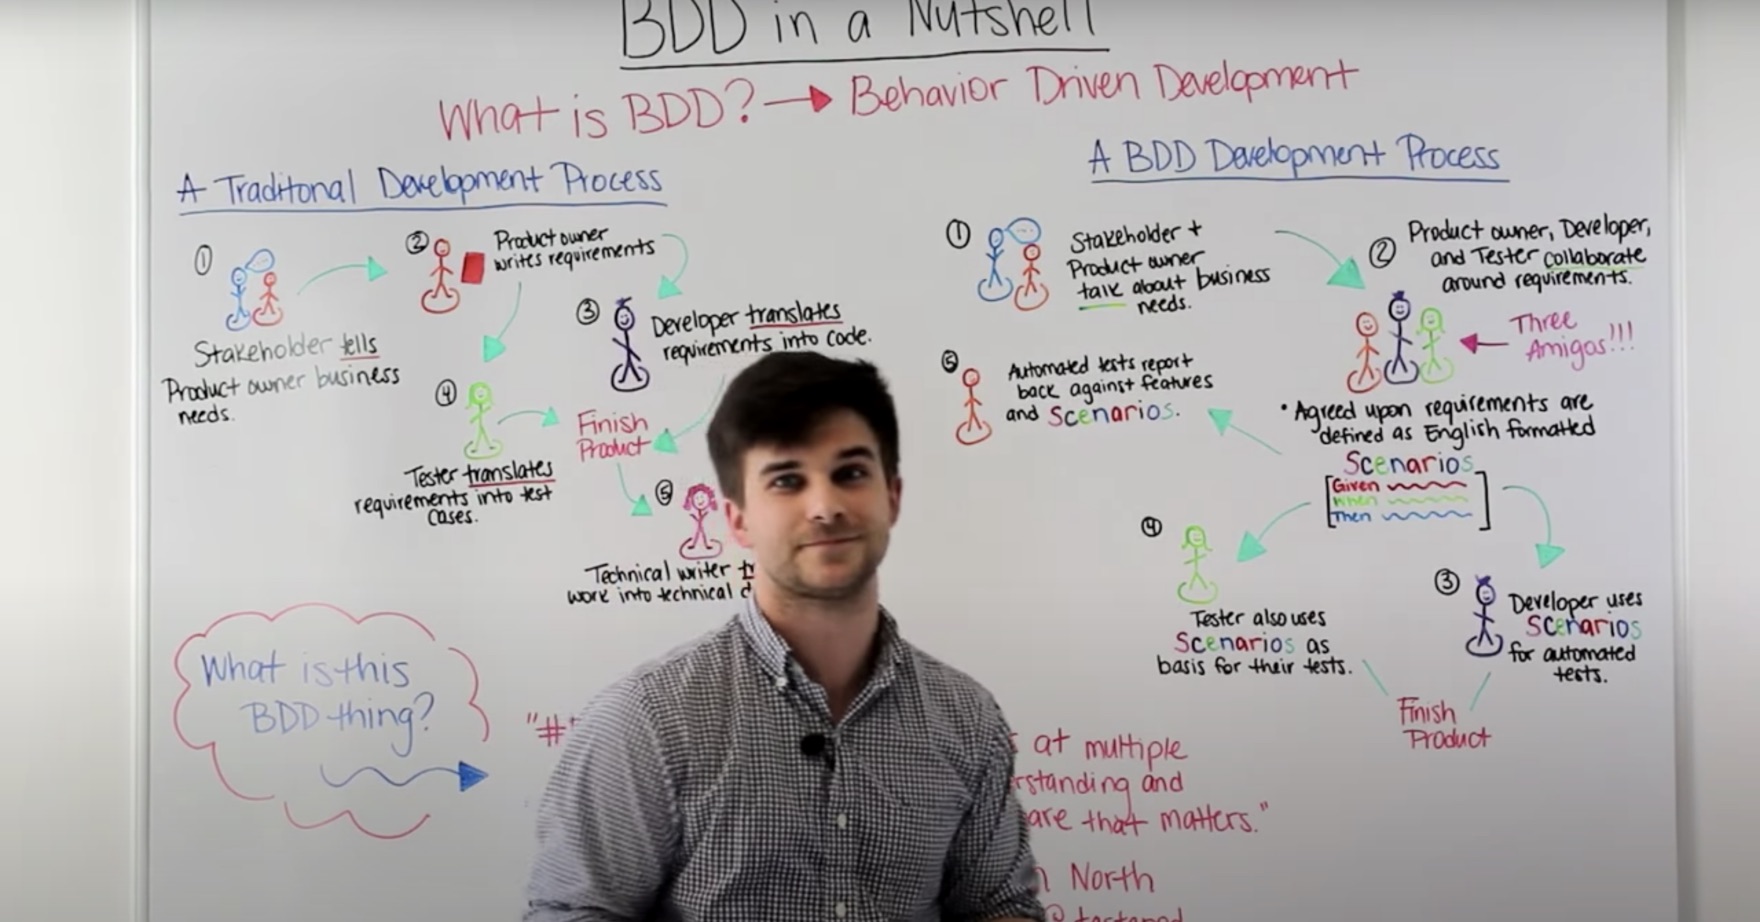 BDD in a Nutshell
What is BDD? → Behavior Driven Development
A Traditonal Development Process
①
Stakeholder tells
Product owner business
needs.
②
Product owner
writes requirements
③
Developer translates
requirements into code.
④
Tester translates
requirements into test
cases.
Finish
Product
⑤
Technical writer
work into technical
What is this
BDD thing?
A BDD Development Process
①
Stakeholder +
Product owner
talk about business
needs.
②
Product owner, Developer,
and Tester collaborate
around requirements.
Three
Amigos!!!
• Agreed upon requirements are
defined as English formatted
Scenarios
Given
When
Then
③
Developer uses
Scenarios
for automated
tests.
④
Tester also uses
Scenarios as
basis for their tests.
Finish
Product
⑤
Automated tests report
back against features
and Scenarios.
"#
at multiple
rstanding and
are that matters."
North